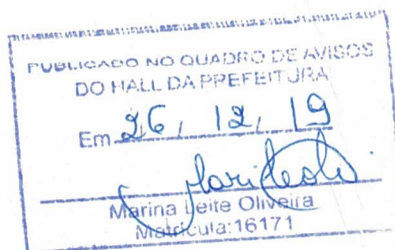 PUBLICADO NO QUADRO DE AVISOS
DO HALL DA PREFEITURA
Em 26 / 12 / 19
Marina Leite Oliveira
Matrícula:16171